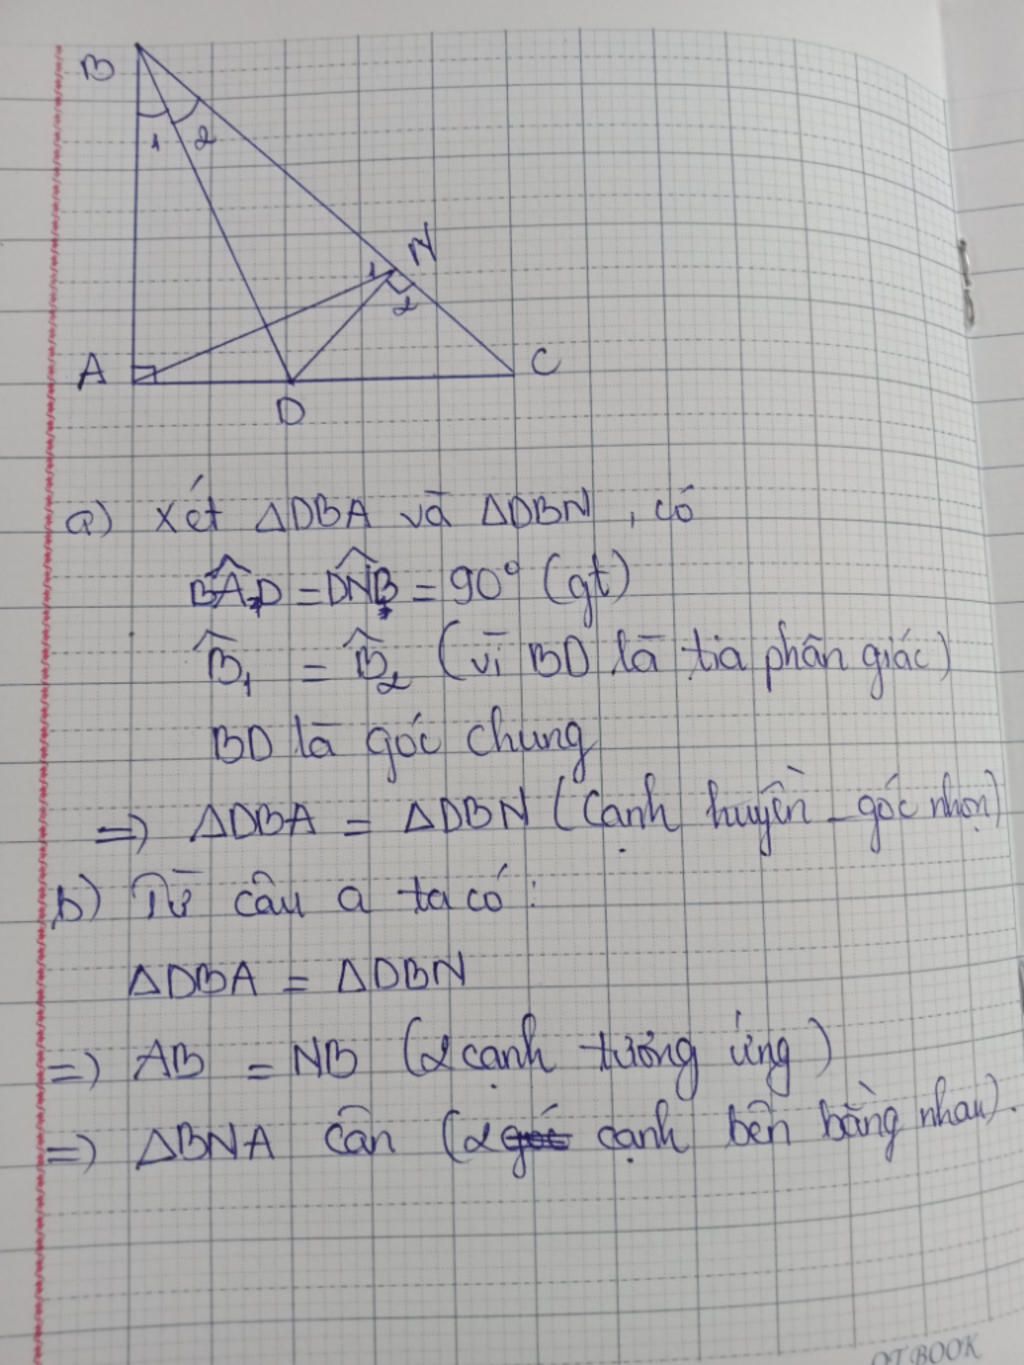 B
1 2
N
1
2
A
C
D
a) Xét ΔDBA và ΔDBN, có
BAD = DNB = 90° (gt)
B̂₁ = B̂₂ (vì BD là tia phân giác)
BD là góc chung
=> ΔDBA = ΔDBN (cạnh huyền - góc nhọn)
b) Từ câu a ta có:
ΔDBA = ΔDBN
=> AB = NB (2 cạnh tương ứng)
=> ΔBNA cân (2 cạnh bên bằng nhau).
OT BOOK